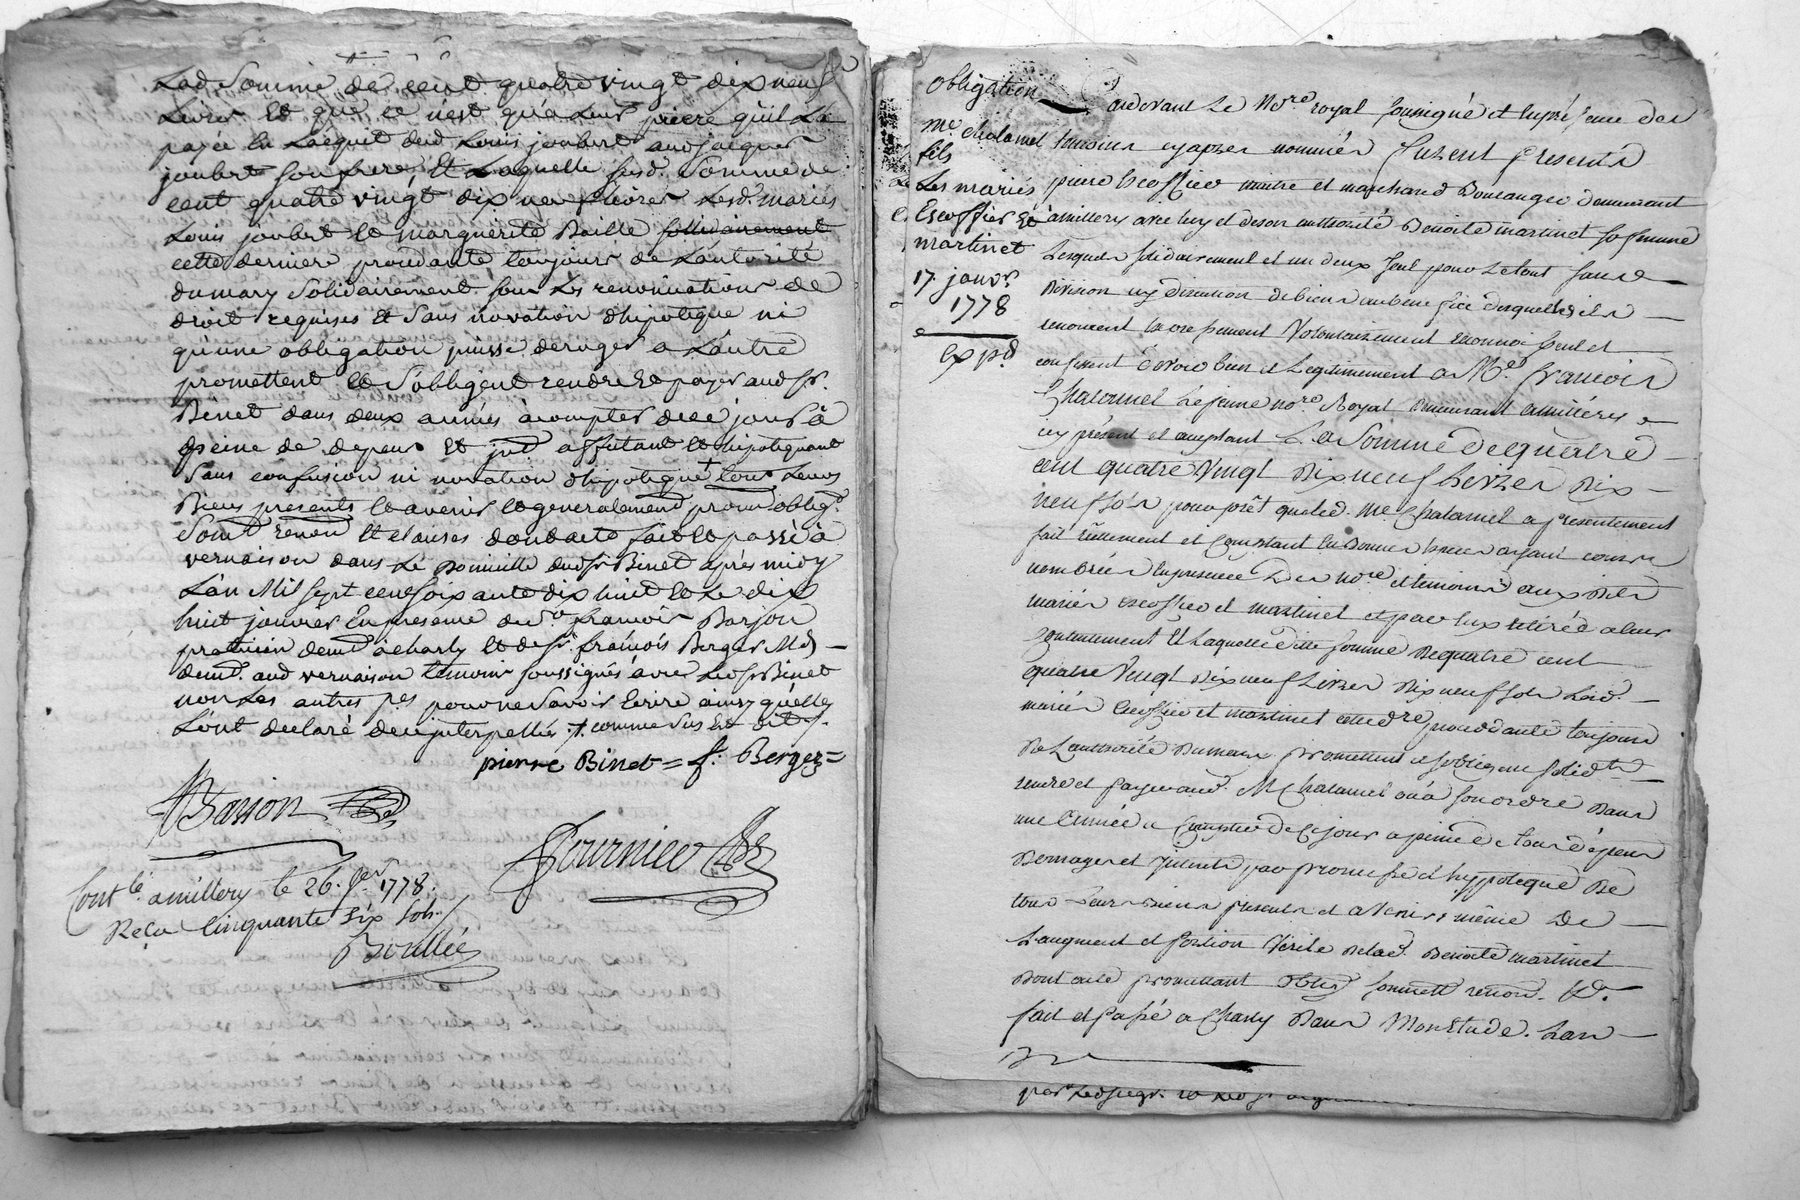 Lad. Somme de cent quatre vingt dix neuf
Livres Et que ce n'est qu'a leur priere qu'il La
payée En L'acquit dud. Louis joubert aud. jacques
joubert son frere, Et Laquelle susd. Somme de
cent quatre vingt dix neuf livres Lesd. mariés
Louis joubert et marguerite Baille sollidairement
cette derniere procedante toujours de L'autorité
du mary Solidairement sous Les renonciations de
droit requises Et Sans novation d'hipoteque ni
qu'une obligation puisse deroger a L'autre
promettent et S'obligent rendre et payer aud. Sr.
Binet dans deux années à compter de ce jour à
peine de depens et int. affectant et hipotequant
Sans confusion ni novation d'hipoteque tous Leurs
Biens presents et avenir et generalement prom. oblig.
Soum. renon. Et clauses dont acte fait et passé à
vernaison dans Le Domicille dud. Sr. Binet après midy
L'an Mil Sept cent soixante dix huit et Le dix
huit janvier En presence de Sr. francois Barjon
praticien demt. à charly et de Sr. francois Berger Md. —
demt. aud vernaison temoins soussignés avec Led. Sr. Binet
non Les autres p.es pour ne Savoir Ecrire ainsy qu'elles
L'ont declaré de ce interpellés .+. comme Sus Est dit ./.
pierre Binet = f. Berger =
Barjon
Fournier
Cont.lé a millery le 26. Jer. 1778.
Reçu Cinquante Six Sols./
Boullée
Obligation
Me. chalamel
fils
Les mariés
Escoffier Et
martinet
17. janvr.
1778
Exp.d
Pardevant Le No.re royal soussigné et En présence des
temoins cy apres nommés furent presents
pierre Escoffier maitre et marchand Boulanger demeurant
a millery avec luy et de son authorité Benoite martinet sa femme
Lesquels solidairement et un deux seul pour Le tout sans —
Division ny Discution de biens au benefice desquels ils —
renoncent Expressement Volontairement reconnoissent et
confessent devoir bien et Legitimement a Me. francois
Chalamel Le jeune no.re Royal Demeurant a millery —
icy présent et acceptant La Somme De quatre —
cent quatre Vingt Dix neuf Livres Dix —
neuf sols pour prêt que led. Me. Chalamel a presentement
fait reellement et Comptant En bonnes Especes ayant cours
nombrées En presence Des no.re et temoins aux Dits
mariés Escoffier et martinet et par Eux retirée a leur
Contentement Et Laquelle ditte Somme De quatre cent —
quatre Vingt Dix neuf Livres Dix neuf sols Lesd. —
mariés Escoffier et martinet cette d.re procedante toujours
De L'authorité Du mary promettent et s'obligent solid.t —
rendre et payer aud. Me. Chalamel ou à son ordre Dans
une Année a Compter De Ce jour a peine de tous Dépens
Domages et Interets par promesse et hyppoteque De
tous Leurs biens presents et a Venir, même De —
L'augment et portion Virile De lad. Benoite martinet —
Dont acte promettant Oblig. Soumett. renon. &c.
fait et Passé a Charly Dans Mon Etude. L'an —